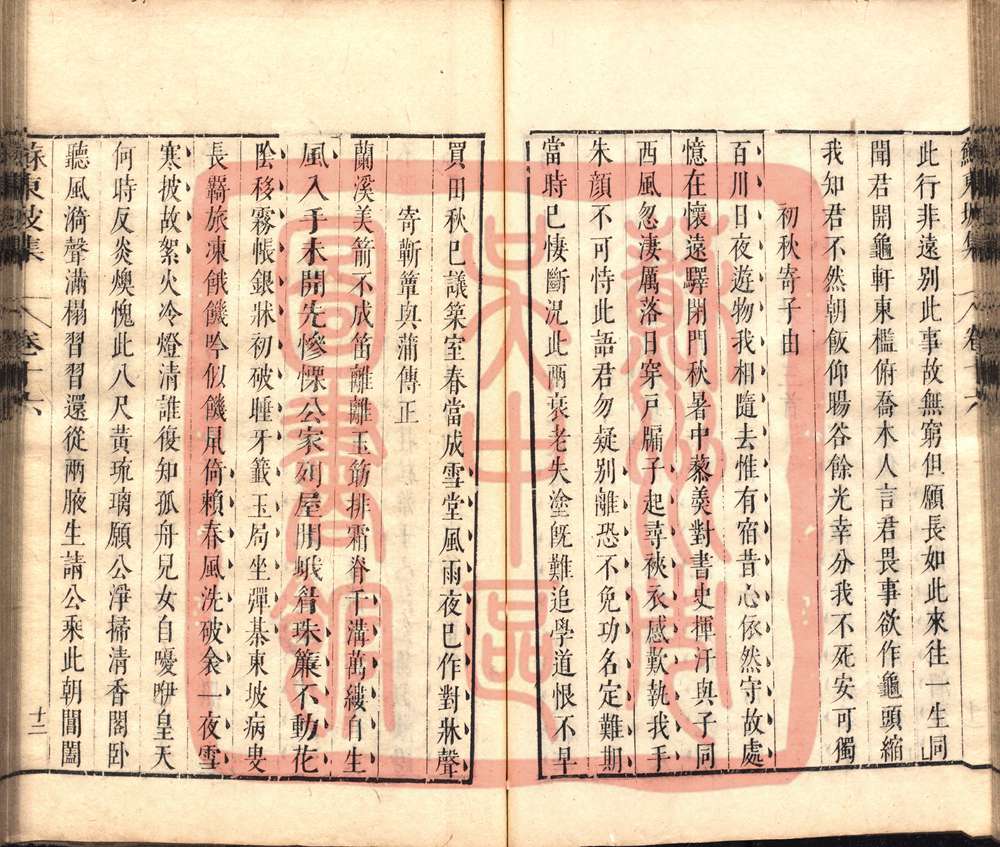 蘇東坡集　卷十六
此行非遠別此事故無窮但願長如此來往一生同
聞君開龜軒東檻俯喬木人言君畏事欲作龜頭縮
我知君不然朝飯仰暘谷餘光幸分我不死安可獨
初秋寄子由
百川日夜逝物我相隨去惟有宿昔心依然守故處
憶在懷遠驛閉門秋暑中藜羹對書史揮汗與子同
西風忽淒厲落日穿戶牖子起尋裌衣感歎執我手
朱顏不可恃此語君勿疑別離恐不免功名定難期
當時已悽斷況此兩衰老失塗旣難追學道恨不早
買田秋已議築室春當成雪堂風雨夜已作對牀聲
寄蘄簟與蒲傳正
蘭溪美箭不成笛離離玉筯排霜脊千溝萬縷自生
風入手未開先慘慄公家列屋閒蛾眉珠簾不動花
陰移霧帳銀牀初破睡牙籤玉局坐彈棊東坡病叟
長羇旅凍餓饑吟似饑鼠倚賴春風洗破衾一夜雪
寒披故絮火冷燈清誰復知孤舟兒女自嚘咿皇天
何時反炎燠愧此八尺黃琉璃願公淨掃清香閣卧
聽風漪聲滿榻習習還從兩腋生請公乘此朝閶闔
蘇東坡集　卷十六　十二
蘇州市
吳中區
圖書館